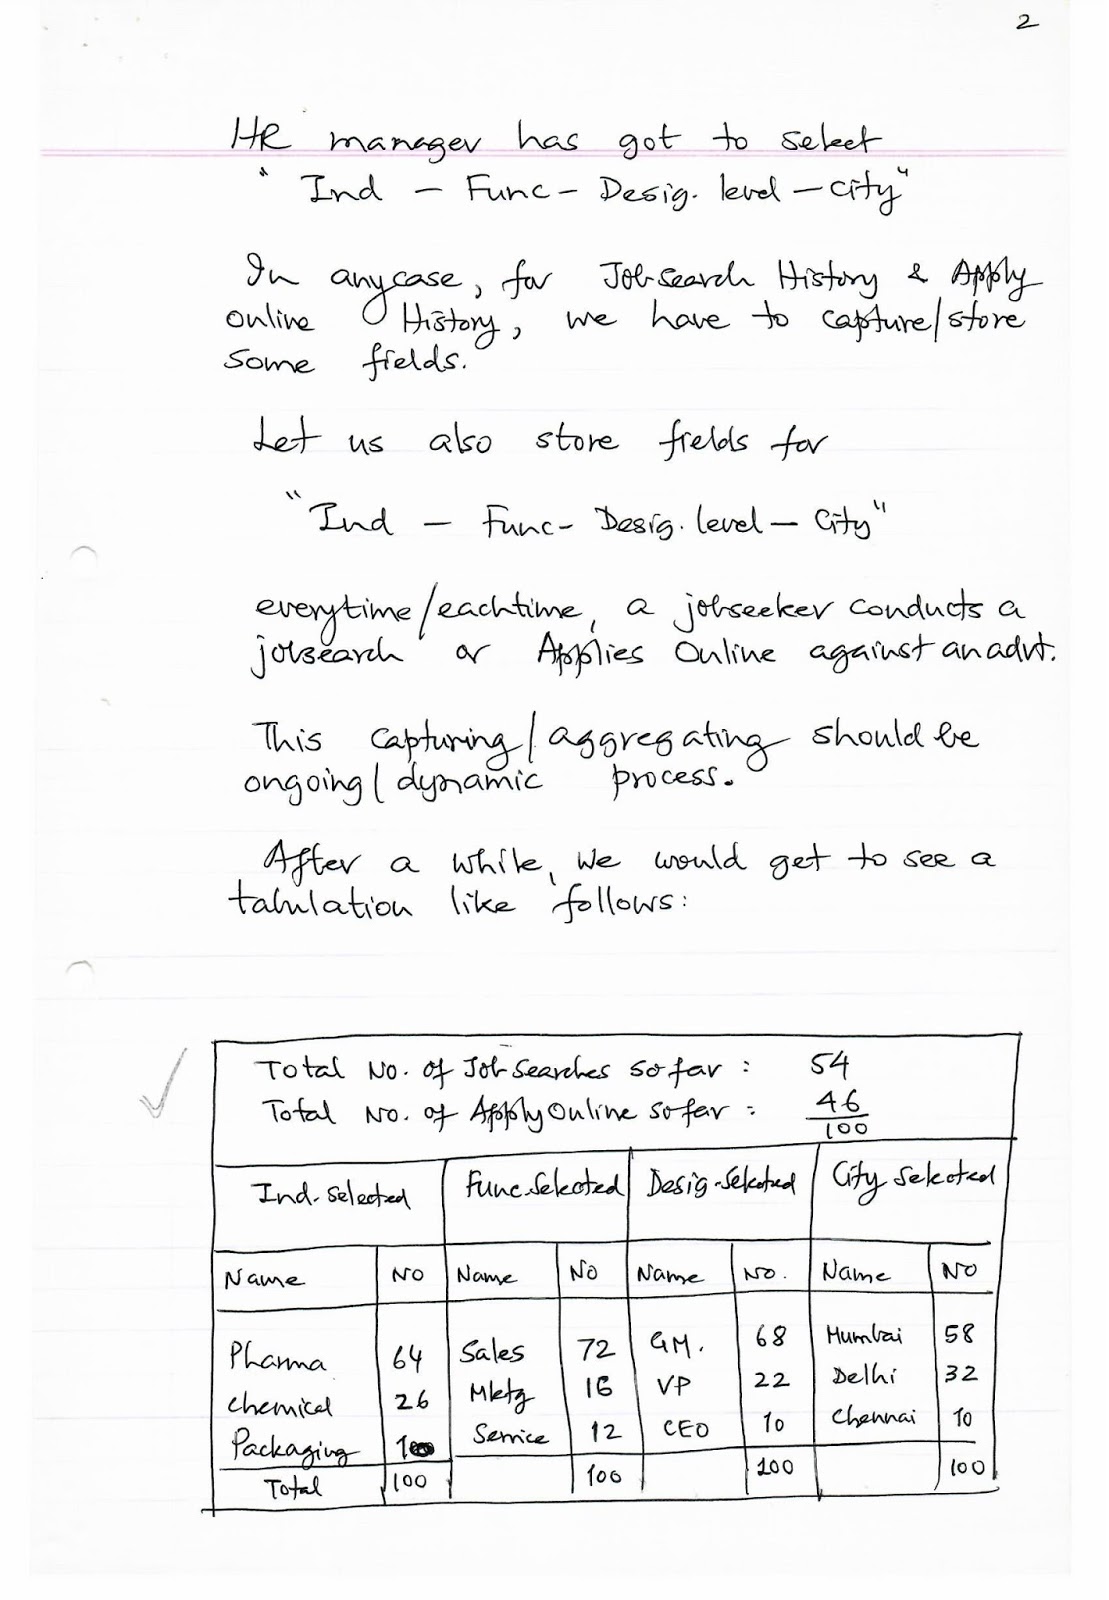 2
HR manager has got to select
" Ind - Func - Desig. level - city"
In anycase, for Jobsearch History & Apply
Online History, we have to capture/store
some fields.
Let us also store fields for
"Ind - Func - Desig. level - City"
everytime/eachtime, a jobseeker conducts a
jobsearch or Applies Online against an advt.
This capturing/aggregating should be
ongoing/dynamic process.
After a while, we would get to see a
tabulation like follows:
Total No. of Job Searches so far : 54
Total No. of Apply Online so far : 46
100
Ind. Selected Func. Selected Desig. Selected City Selected
Name No Name No Name No. Name No
Pharma 64 Sales 72 GM. 68 Mumbai 58
Chemical 26 Mktg 16 VP 22 Delhi 32
Packaging 10 Service 12 CEO 10 Chennai 10
Total 100 100 100 100